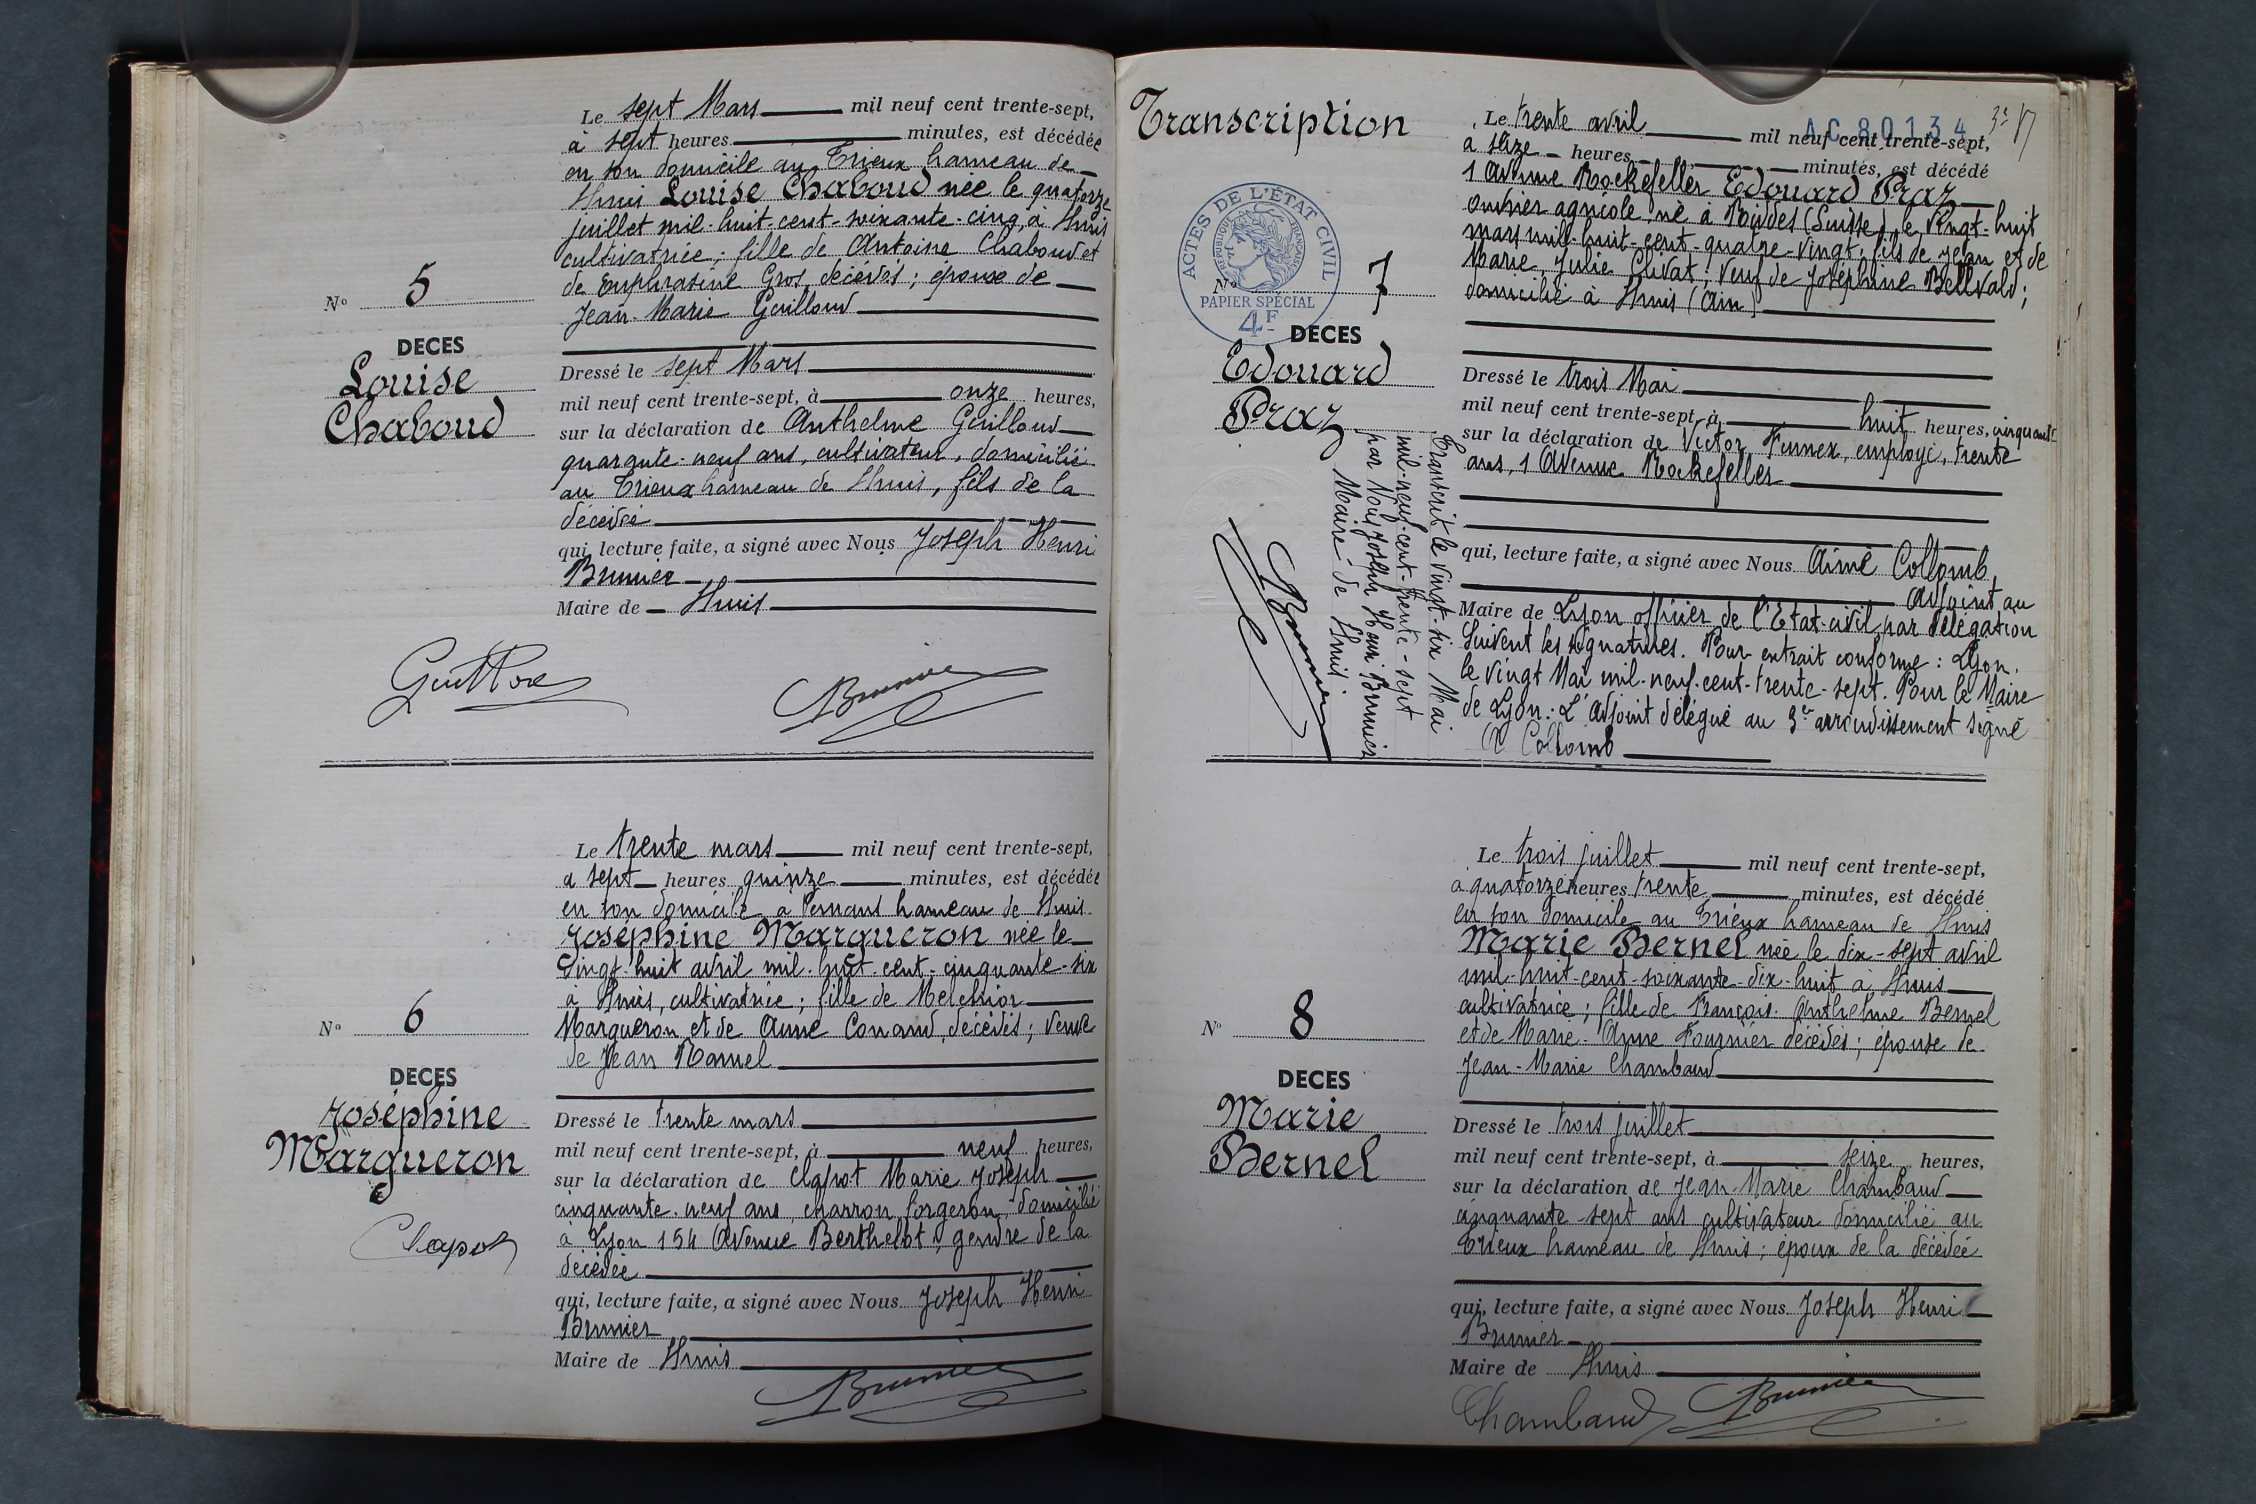 Le sept Mars mil neuf cent trente-sept,
à sept heures minutes, est décédée
en son domicile au Trieux hameau de
Lhuis Louise Chaboud née le quatorze
juillet mil-huit-cent-soixante-cinq, à Lhuis
cultivatrice; fille de Antoine Chaboud et
de Euphrasine Gros, décédés; épouse de
Jean-Marie Guilloud
No 5
DECES
Louise
Chaboud
Dressé le sept Mars
mil neuf cent trente-sept, à onze heures,
sur la déclaration de Anthelme Guilloud
quarante-neuf ans, cultivateur, domicilié
au Trieux hameau de Lhuis, fils de la
décédée
qui, lecture faite, a signé avec Nous Joseph Henri
Brunier
Maire de Lhuis
Brunier
Le trente mars mil neuf cent trente-sept,
à sept heures quinze minutes, est décédée
en son domicile à hameau de Lhuis
Joséphine Margueron née le
vingt-huit avril mil-huit-cent-cinquante-six
à Lhuis, cultivatrice; fille de Melchior
Margueron et de Anne Conand, décédés; veuve
de Jean Ramel
No 6
DECES
Joséphine
Margueron
Dressé le trente mars
mil neuf cent trente-sept, à neuf heures,
sur la déclaration de Clapot Marie Joseph
cinquante-neuf ans, charron forgeron, domicilié
à Lyon 154 Avenue Berthelot, gendre de la
décédée
Clapot
qui, lecture faite, a signé avec Nous Joseph Henri
Brunier
Maire de Lhuis
Brunier
Transcription
AC 80134
Le trente avril mil neuf cent trente-sept,
à seize heures minutes, est décédé
1 Avenue Rockefeller Edouard Praz
ouvrier agricole né à Riddes (Suisse), le vingt-huit
mars mill-huit-cent-quatre-vingt, fils de Jean et de
Marie, Julie Clivat; veuf de Joséphine Bellvald;
domicilié à Lhuis (Ain)
ACTES DE L'ÉTAT CIVIL
REPUBLIQUE FRANCAISE
PAPIER SPÉCIAL
4F
No 7
DECES
Edouard
Praz
Dressé le trois Mai
mil neuf cent trente-sept, à huit heures, cinquante
sur la déclaration de Victor, employé, trente
ans, 1 Avenue Rockefeller
qui, lecture faite, a signé avec Nous Aimé Collomb,
Adjoint au
Maire de Lyon officier de l'Etat-civil par délégation
Suivent les signatures. Pour extrait conforme: Lyon.
le vingt Mai mil-neuf-cent-trente-sept. Pour le Maire
de Lyon: L'Adjoint délégué au 3e arrondissement signé
A Collomb
Transcrit le vingt-six Mai
mil-neuf-cent-trente-sept
par Nous Joseph Henri Brunier
Maire de Lhuis.
Brunier
Le trois juillet mil neuf cent trente-sept,
à quatorze heures trente minutes, est décédé
en son domicile au Trieux hameau de Lhuis
Marie Bernel née le dix-sept avril
mil-huit-cent-soixante-dix-huit à Lhuis
cultivatrice; fille de François-Anthelme Bernel
et de Marie-Anne Fournier décédés; épouse de
Jean-Marie Chambaud
No 8
DECES
Marie
Bernel
Dressé le trois juillet
mil neuf cent trente-sept, à seize heures,
sur la déclaration de Jean-Marie Chambaud
cinquante-sept ans cultivateur domicilié au
Trieux hameau de Lhuis; époux de la décédée
qui, lecture faite, a signé avec Nous Joseph Henri
Brunier
Maire de Lhuis
Chambaud Brunier